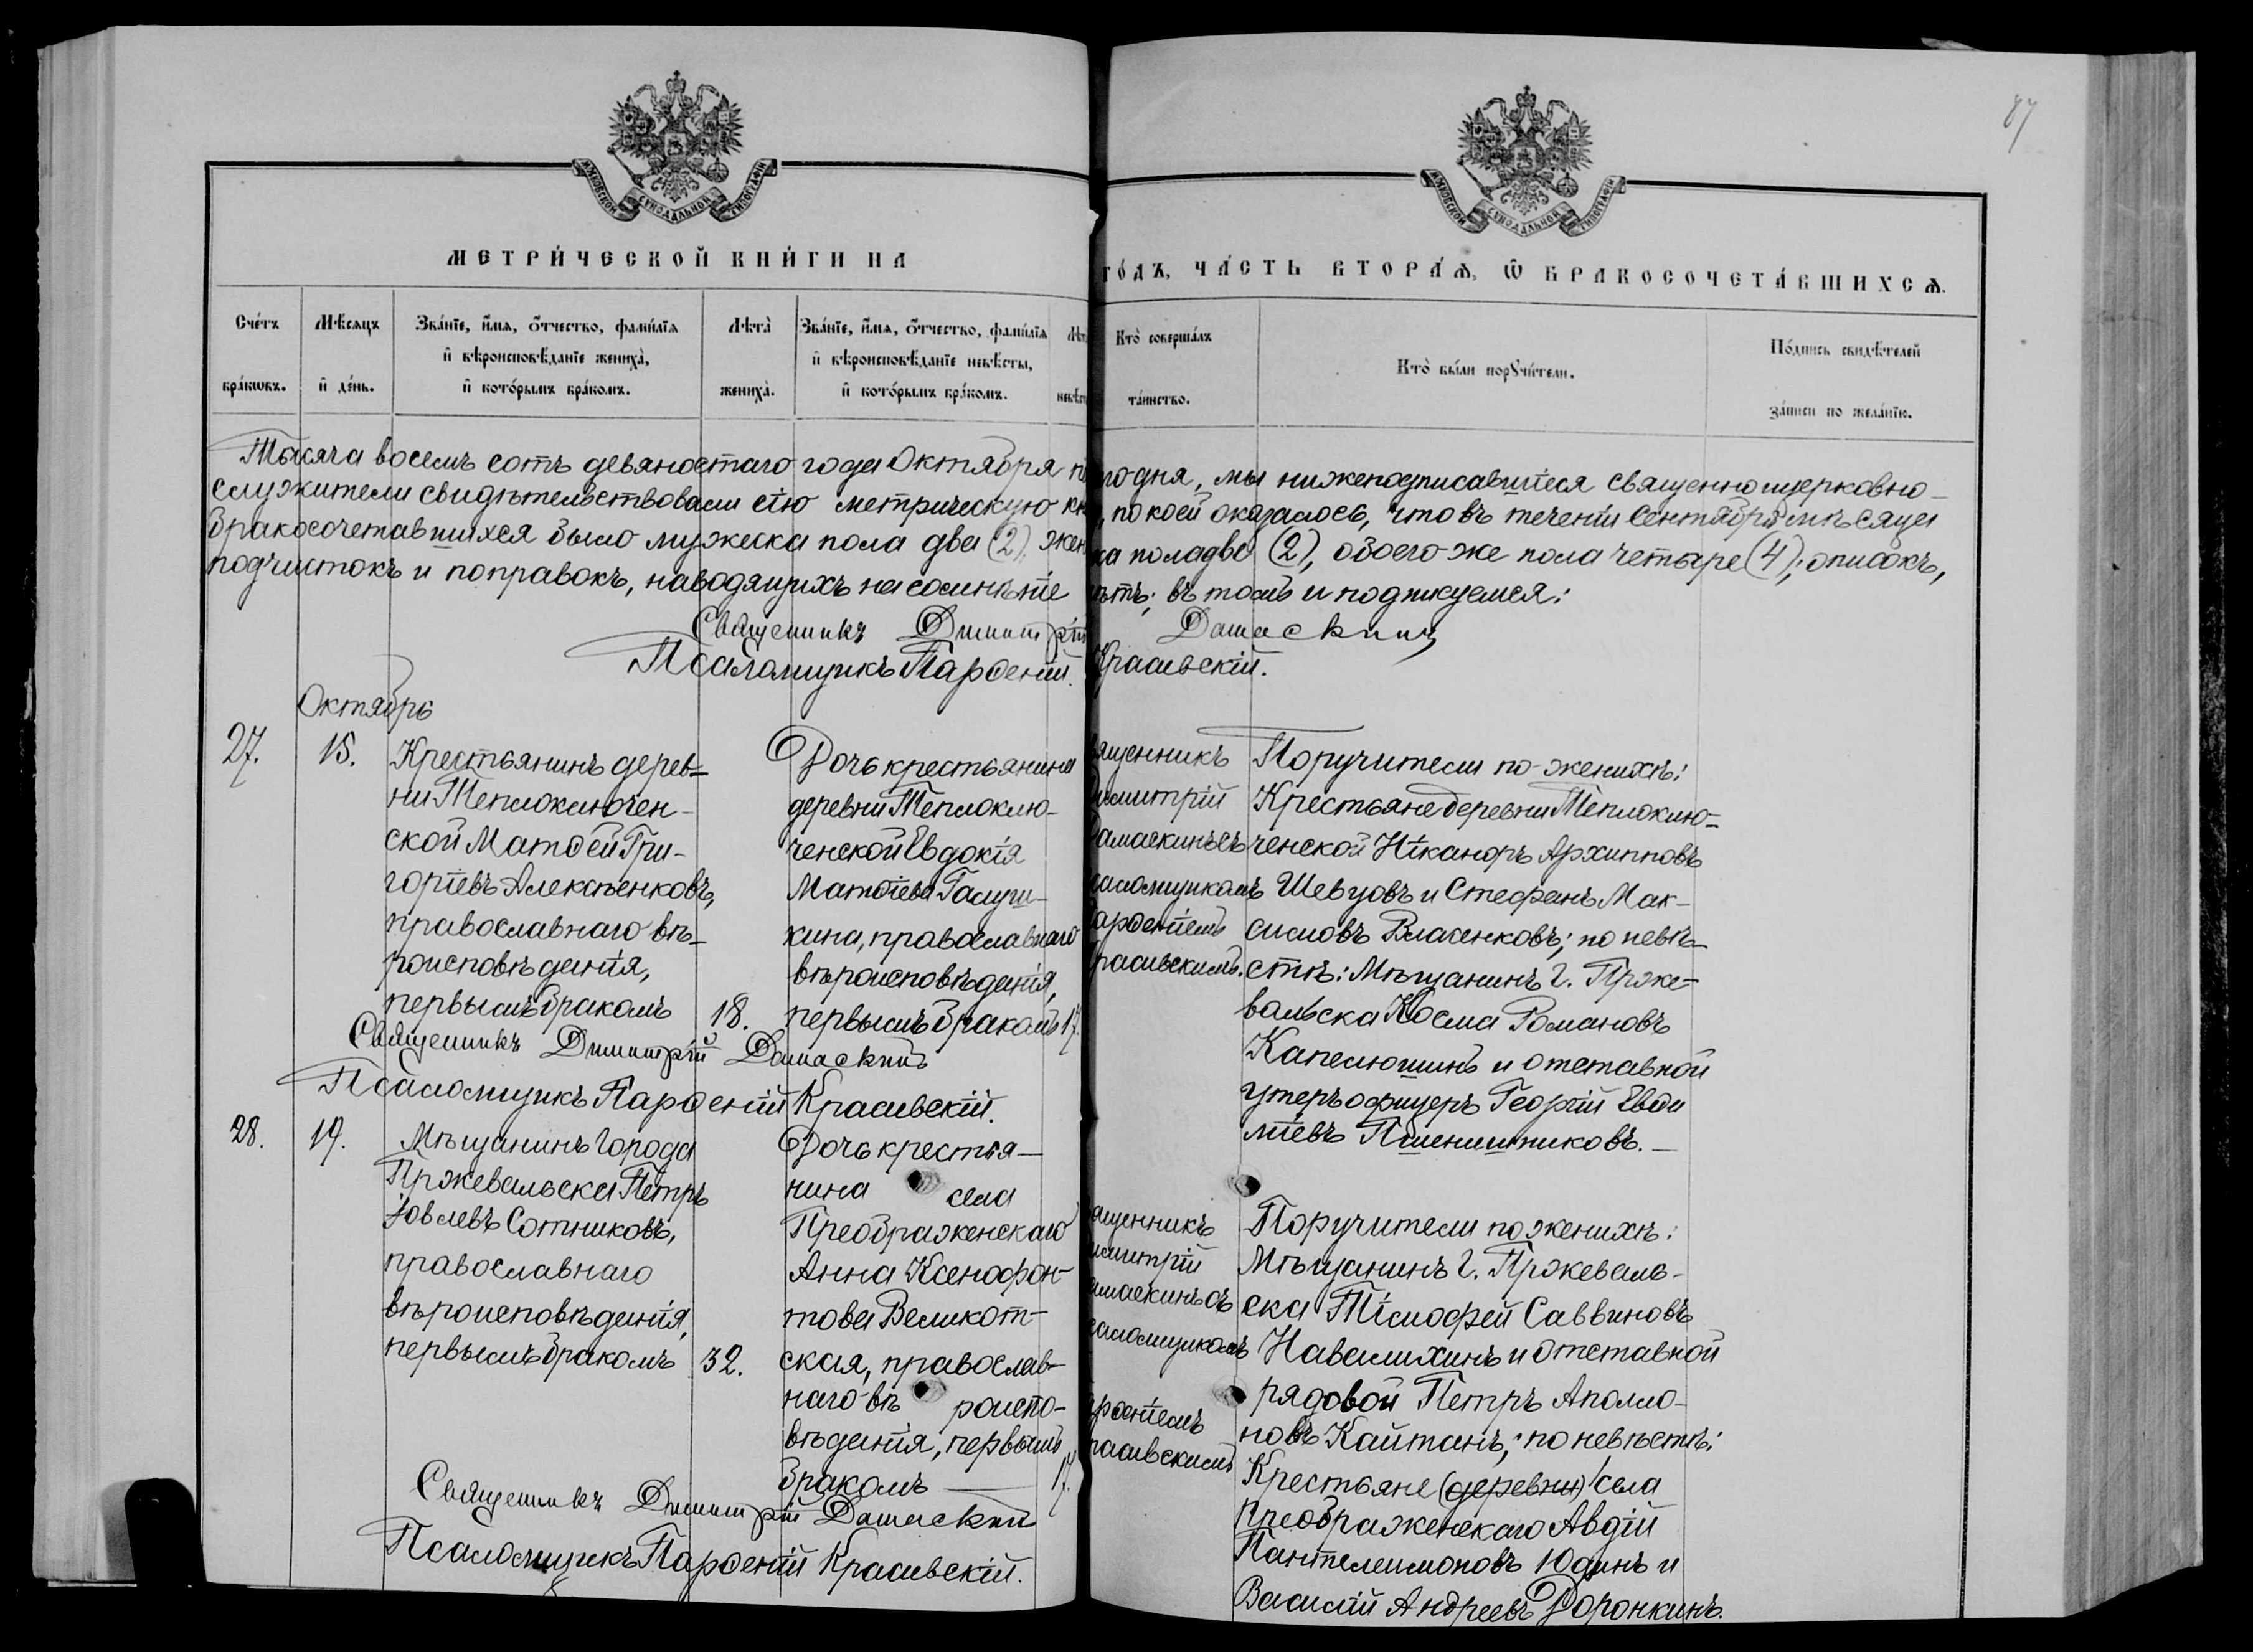 87
МОСКОВСКОЙ СѴНОДАЛЬНОЙ ТИПОГРАФІИ
МОСКОВСКОЙ СѴНОДАЛЬНОЙ ТИПОГРАФІИ
МЕТРИ́ЧЕСКОЙ КНИ́ГИ НА
ГО́ДЪ, ЧА́СТЬ ВТОРА́Ѧ, Ѿ БРАКОСОЧЕТА́ВШИХСѦ.
Сче́тъ
бра́ковъ.
Мѣ́сяцъ
и҆ де́нь.
Зва́нїе, и҆́мѧ, ѻ҆́тчество, фами́лїѧ
и҆ вѣроисповѣ́данїе жениха̀,
и҆ кото́рымъ бра́комъ.
Лѣта̀
жениха̀.
Зва́нїе, и҆́мѧ, ѻ҆́тчество, фами́лїѧ
и҆ вѣроисповѣ́данїе невѣ́сты,
и҆ кото́рымъ бра́комъ.
Кто̀ соверша́лъ
та́инство.
Кто̀ бы́ли порꙋчи́тели.
По́дпись свидѣ́телей
за́писи по жела́нїю.
Тысяча восемъ сотъ девяностаго года Октября дня, мы нижеподписавшіеся священноцерковно-
служители свидѣтельствовали сію метрическую , по коей оказалось, что въ теченіи Сентября мѣсяца
бракосочетавшихся было мужеска пола два (2), женска пола две (2), обоего же пола четыре (4); описокъ,
подчистокъ и поправокъ, наводящихъ на сомнѣніе нѣтъ; въ томъ и подпискуемся:
Священникъ Димитрій Дамаскинъ
Псаломщикъ Парѳеній Красивскій.
Октябрь
27.
15.
Крестьянинъ дерев-
ни Теплоключен-
ской Матѳей Гри-
горіевъ Алексѣенковъ,
православнаго вѣ-
роисповѣданія,
первымъ бракомъ
18.
Дочь крестьянина
деревни Теплоклю-
ченской Евдокія
Матѳіева Галуш-
кина, православнаго
вѣроисповѣданія,
первымъ бракомъ
17.
Священникъ
Димитрій
Дамаскинъ съ
псаломщикомъ
Парѳеніемъ
Красивскимъ.
Поручители по женихѣ:
Крестьяне деревни Теплоклю-
ченской Ніканоръ Архипповъ
Шевцовъ и Стефанъ Мак-
симовъ Власенковъ; по невѣ-
стѣ: Мѣщанинъ г. Прже-
вальска Косма Романовъ
Капелюшинъ и отставной
унтеръ офицеръ Георгій Евѳи
міевъ Пшенишниковъ.—
Священникъ Димитрій Дамаскинъ
Псаломщикъ Парѳеній Красивскій.
28.
19.
Мѣщанинъ города
Пржевальска Петръ
Іовлевъ Сотниковъ,
православнаго
вѣроисповѣданія,
первымъ бракомъ
32.
Дочь крестья-
нина села
Преображенскаго
Анна Ксенофон-
това Великот-
ская, православ-
наго вѣ роиспо-
вѣданія, первымъ
бракомъ —
17.
Священникъ
Димитрій
Дамаскинъ съ
псаломщикомъ
Парѳеніемъ
Красивскимъ
Поручители по женихѣ:
Мѣщанинъ г. Пржеваль-
ска Тімофей Саввиновъ
Навалихинъ и отставной
рядовой Петръ Аполло-
новъ Кайтанъ; по невѣстѣ:
Крестьяне (деревни) села
Преображенскаго Авдій
Пантелеимоновъ Юдинъ и
Василій Андреевъ Доронкинъ.
Священникъ Димитрій Дамаскинъ
Псаломщикъ Парѳеній Красивскій.